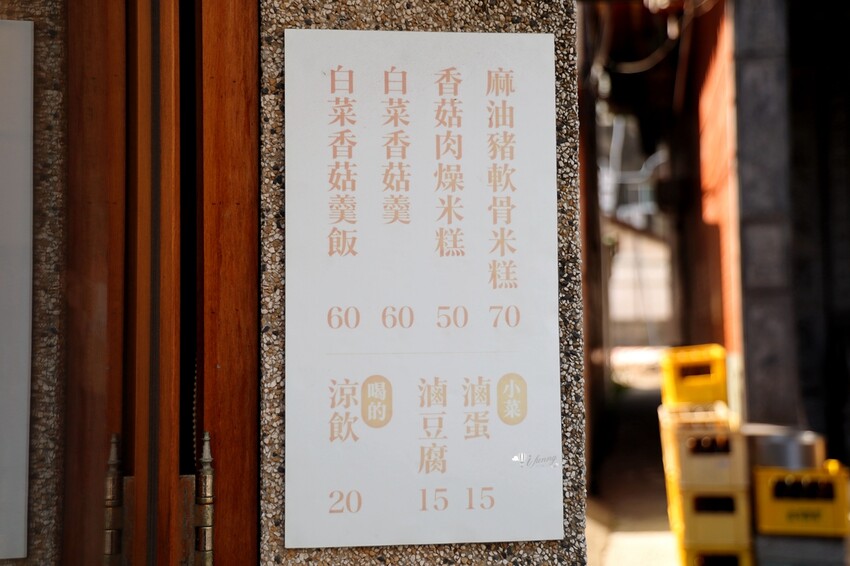 麻油豬軟骨米糕
70
香菇肉燥米糕
50
白菜香菇羹
60
白菜香菇羹飯
60
小菜
滷蛋
15
滷豆腐
15
喝的
涼飲
20